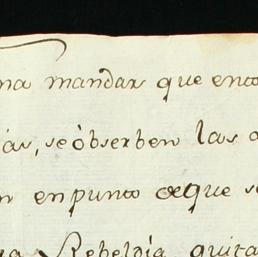 na mandar que ento
ias, se òbserben las
n en punto deque se
na Rebeldia, quita